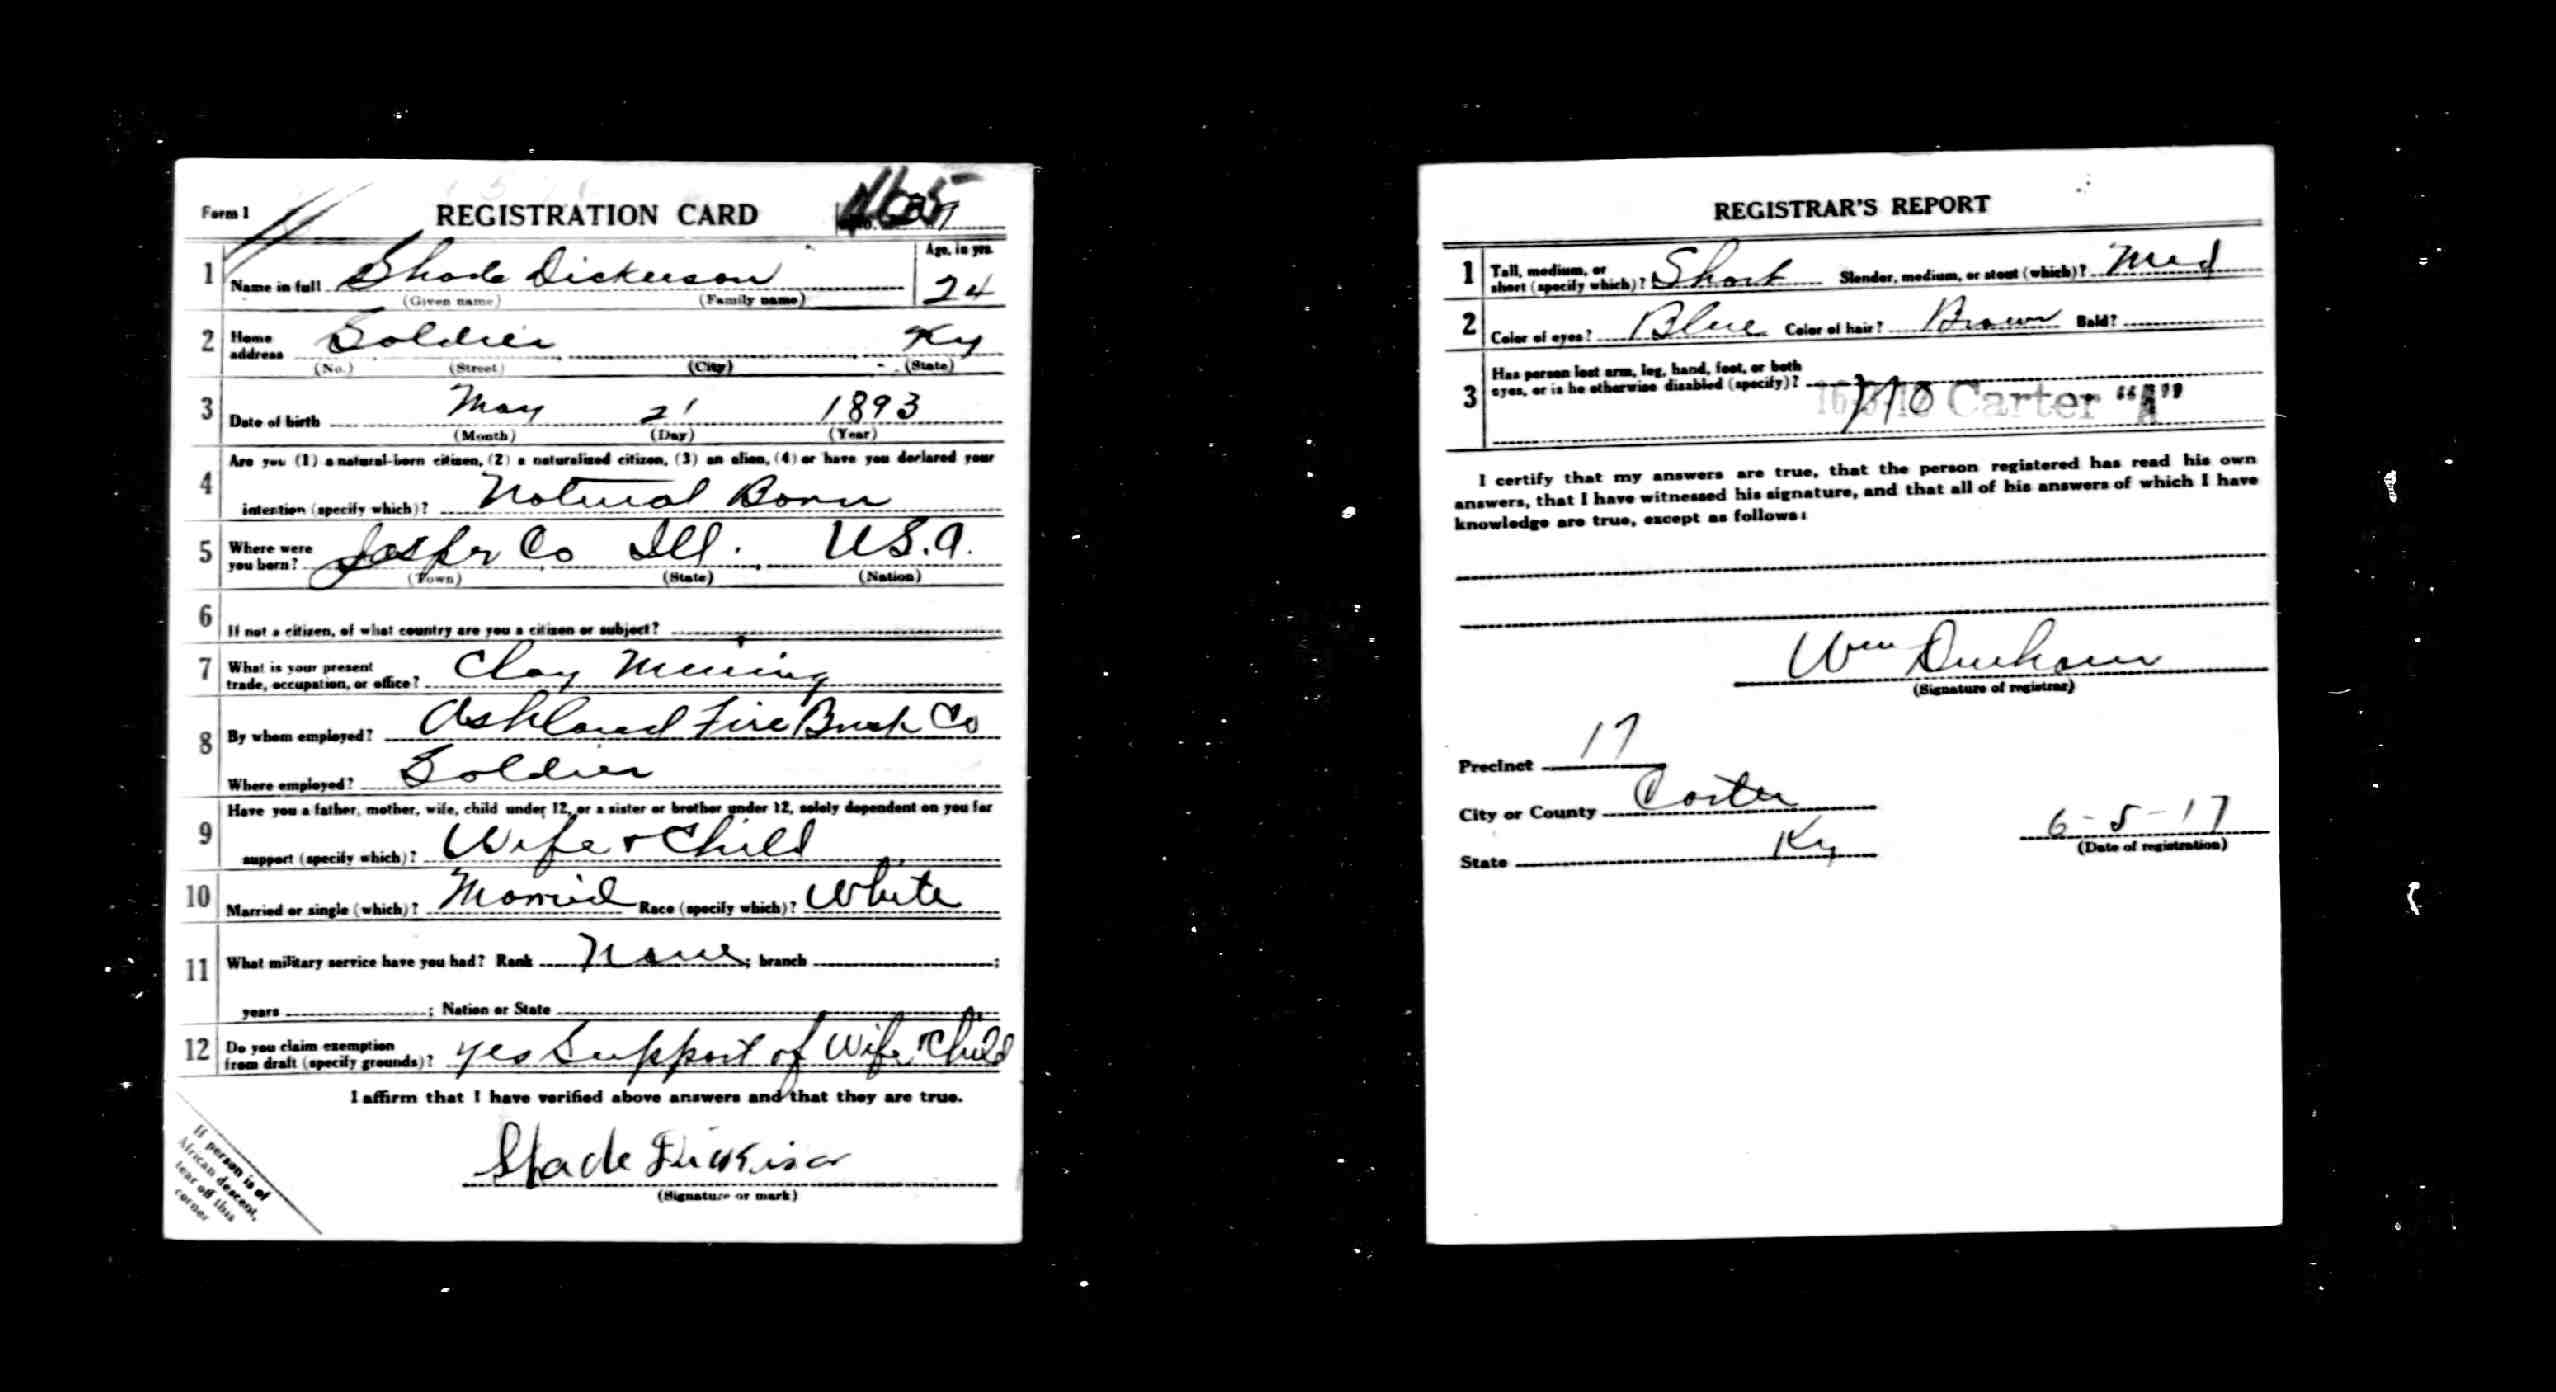 Form 1
REGISTRATION CARD
1 Name in full Shade Dickerson Age, in yrs. 24
(Given name) (Family name)
2 Home address Soldier Ky
(No.) (Street) (City) (State)
3 Date of birth May 21 1893
(Month) (Day) (Year)
4 Are you (1) a natural-born citizen, (2) a naturalized citizen, (3) an alien, (4) or have you declared your
intention (specify which)? Natural Born
5 Where were you born? Jasper Co Ill. U.S.A.
(Town) (State) (Nation)
6 If not a citizen, of what country are you a citizen or subject?
7 What is your present trade, occupation, or office? Clay Mining
8 By whom employed? Ashland Fire Brick Co
Where employed? Soldier
9 Have you a father, mother, wife, child under 12, or a sister or brother under 12, solely dependent on you for
support (specify which)? Wife + Child
10 Married or single (which)? Married Race (specify which)? White
11 What military service have you had? Rank None; branch ;
years ; Nation or State
12 Do you claim exemption from draft (specify grounds)? yes Support of Wife + Child
I affirm that I have verified above answers and that they are true.
Shade Dickison
(Signature or mark)
If person is of
African descent,
tear off this
corner
REGISTRAR'S REPORT
1 Tall, medium, or short (specify which)? Short Slender, medium, or stout (which)? Med
2 Color of eyes? Blue Color of hair? Brown Bald?
3 Has person lost arm, leg, hand, foot, or both
eyes, or is he otherwise disabled (specify)? No
Carter "A"
I certify that my answers are true, that the person registered has read his own
answers, that I have witnessed his signature, and that all of his answers of which I have
knowledge are true, except as follows:
Wm Durham
(Signature of registrar)
Precinct 17
City or County Carter
State Ky
6-5-17
(Date of registration)